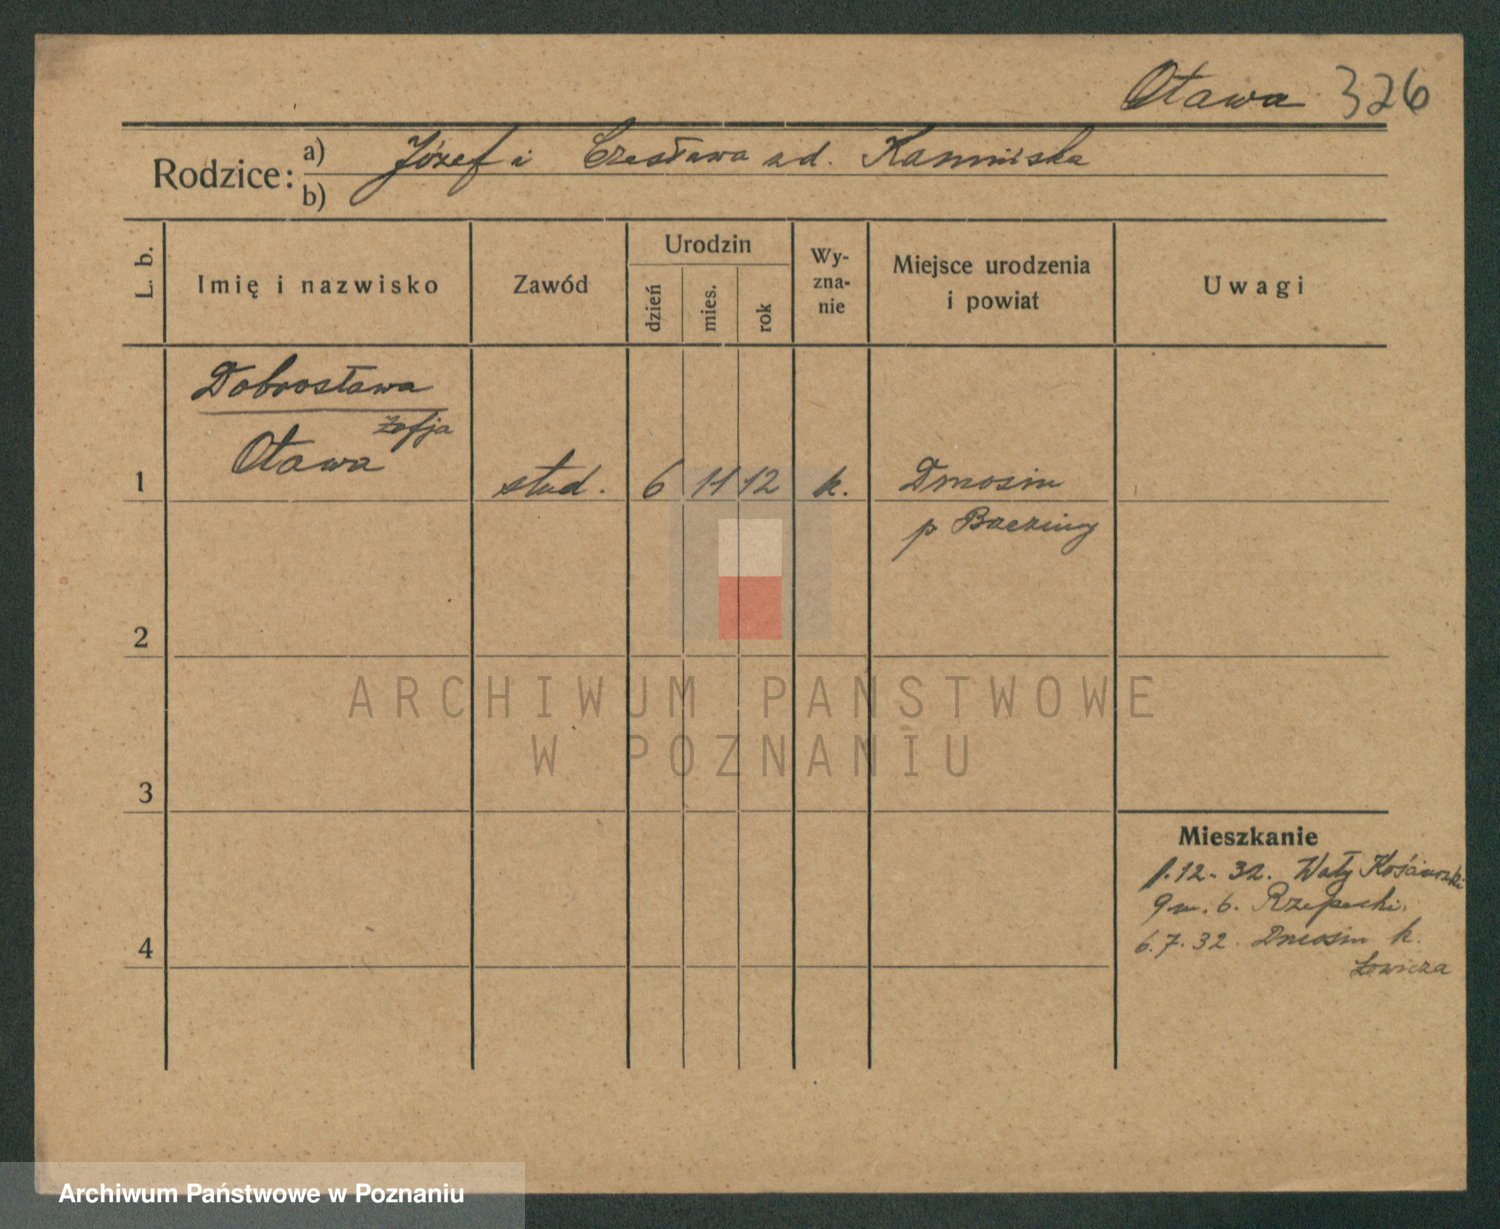 Otawa 326
Rodzice: a) Józef i Czesława zd. Kamińska
b)
L. b.
Imię i nazwisko
Zawód
Urodzin
dzień
mies.
rok
Wy-
zna-
nie
Miejsce urodzenia
i powiat
Uwagi
Dobrosława
Zofja
Otawa
1 stud. 6 11 12 k. Dmosin
p Brzeziny
2
ARCHIWUM PAŃSTWOWE
W POZNANIU
3
Mieszkanie
1.12.32. Wały Kościuszki
9 m. 6. Rzepecki.
4
6.7.32. Dmosin k.
Łowicza
Archiwum Państwowe w Poznaniu